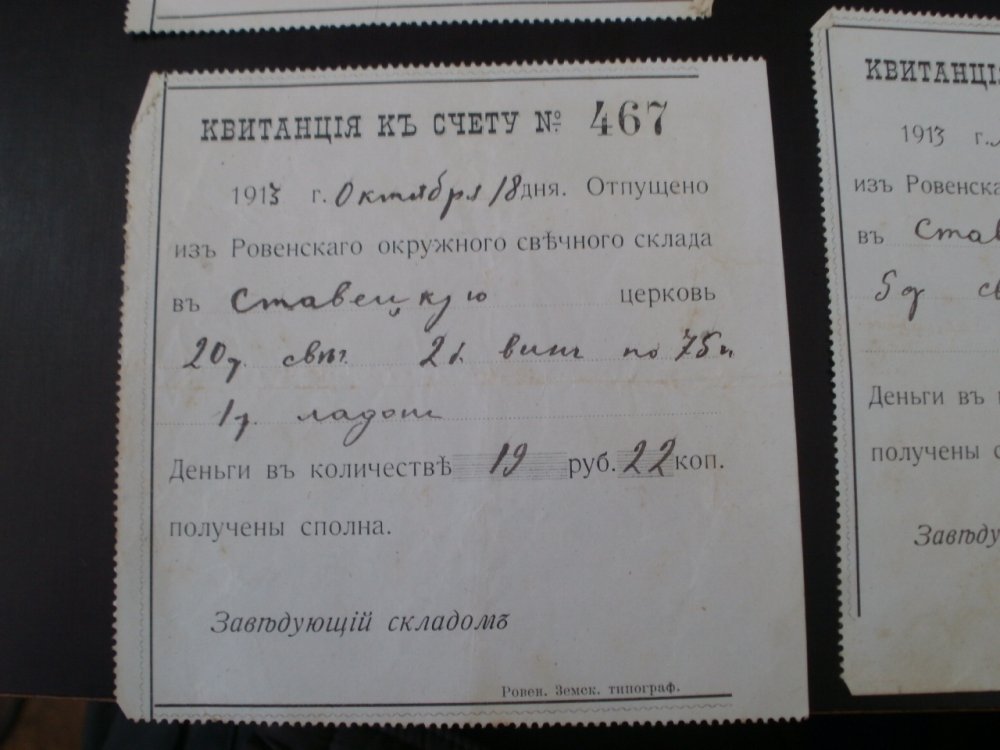 КВИТАНЦІЯ КЪ СЧЕТУ № 467
1913 г. Октября 18 дня. Отпущено
изъ Ровенскаго окружного свѣчного склада
въ Ставецкую церковь
20 свѣч 2 вин по 75
1 ладон
Деньги въ количествѣ 19 руб. 22 коп.
получены сполна.
Завѣдующій складомъ
Ровен. Земск. типограф.
КВИТАНЦІ
1913 г.
изъ Ровенска
въ Став
5 св
Деньги въ
получены с
Завѣду